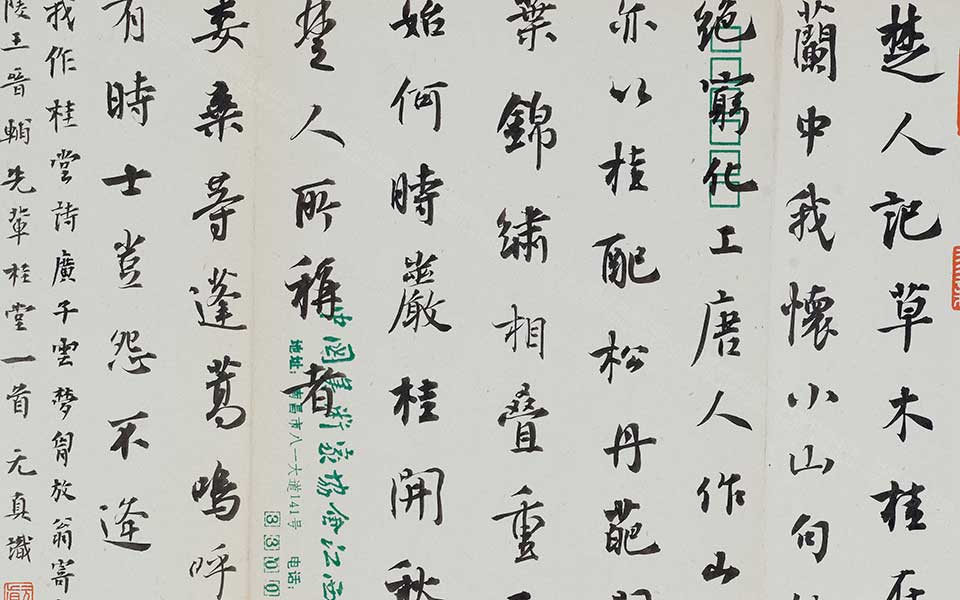 楚人記草木桂在
蘭中我懷小山句
絕窮化工唐人作山
亦以桂配松丹葩
葉錦繡相叠重
始何時嚴桂開秋
楚人所稱者
委桑等蓬蒿嗚呼
有時士豈怨不逢
我作桂堂詩廣子雲夢胷放翁寄
陵王晉輔先輩桂堂一首 元真識
中国美术家协会江西
地址：南昌市八一大道141号 电话：
3300